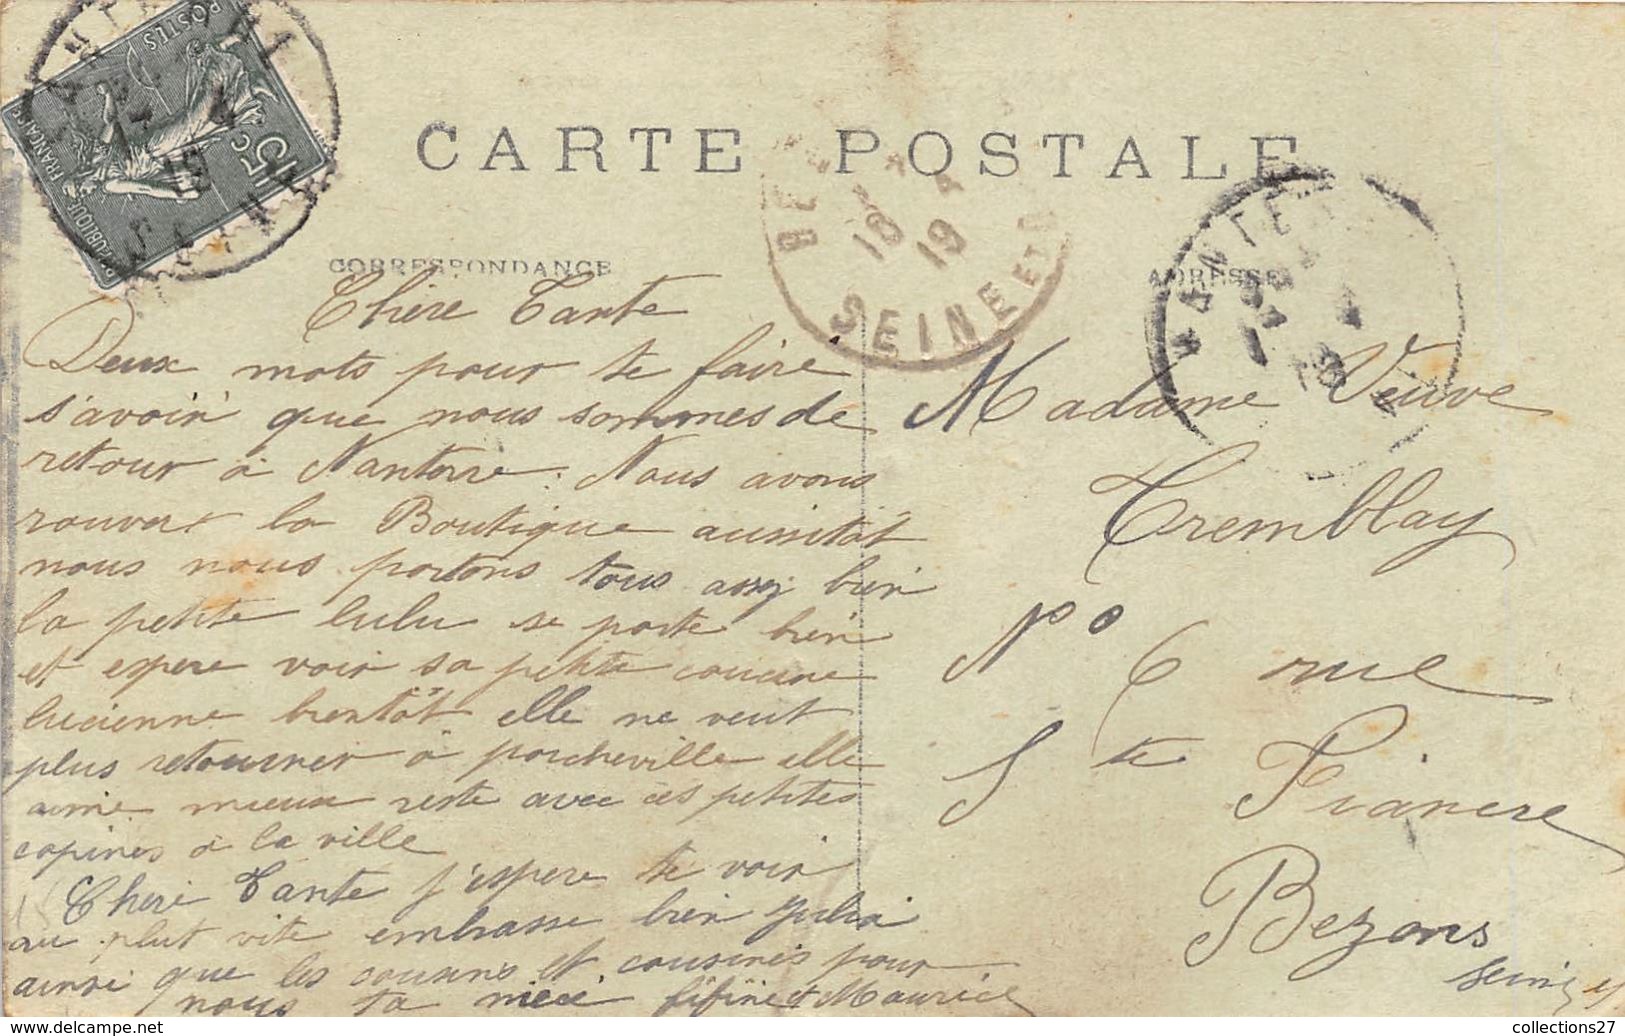 RÉPUBLIQUE FRANÇAISE
POSTES
15c
CARTE POSTALE
18 19
SEINE ET
NANTERRE
CORRESPONDANCE
ADRESSE
Chère Tante
Deux mots pour te faire
s'avoir que nous sommes de
retour à Nanterre. Nous avons
rouvert la Boutique aussitôt
nous nous portons tous assez bien
la petite lulu se porte bien
et espere voir sa petite cousine
lucienne bientôt elle ne veut
plus retourner à porcheville elle
aime mieux reste avec ces petites
copines à la ville
Chere Tante j'espere te voir
au plut vite embrasse bien Julia
ainsi que les cousins et cousines pour
nous ta niece fifine et Maurice
Madame Veuve
Tremblay
No 6 rue
Ste Fiancre
Bezons
Seine et
collections27